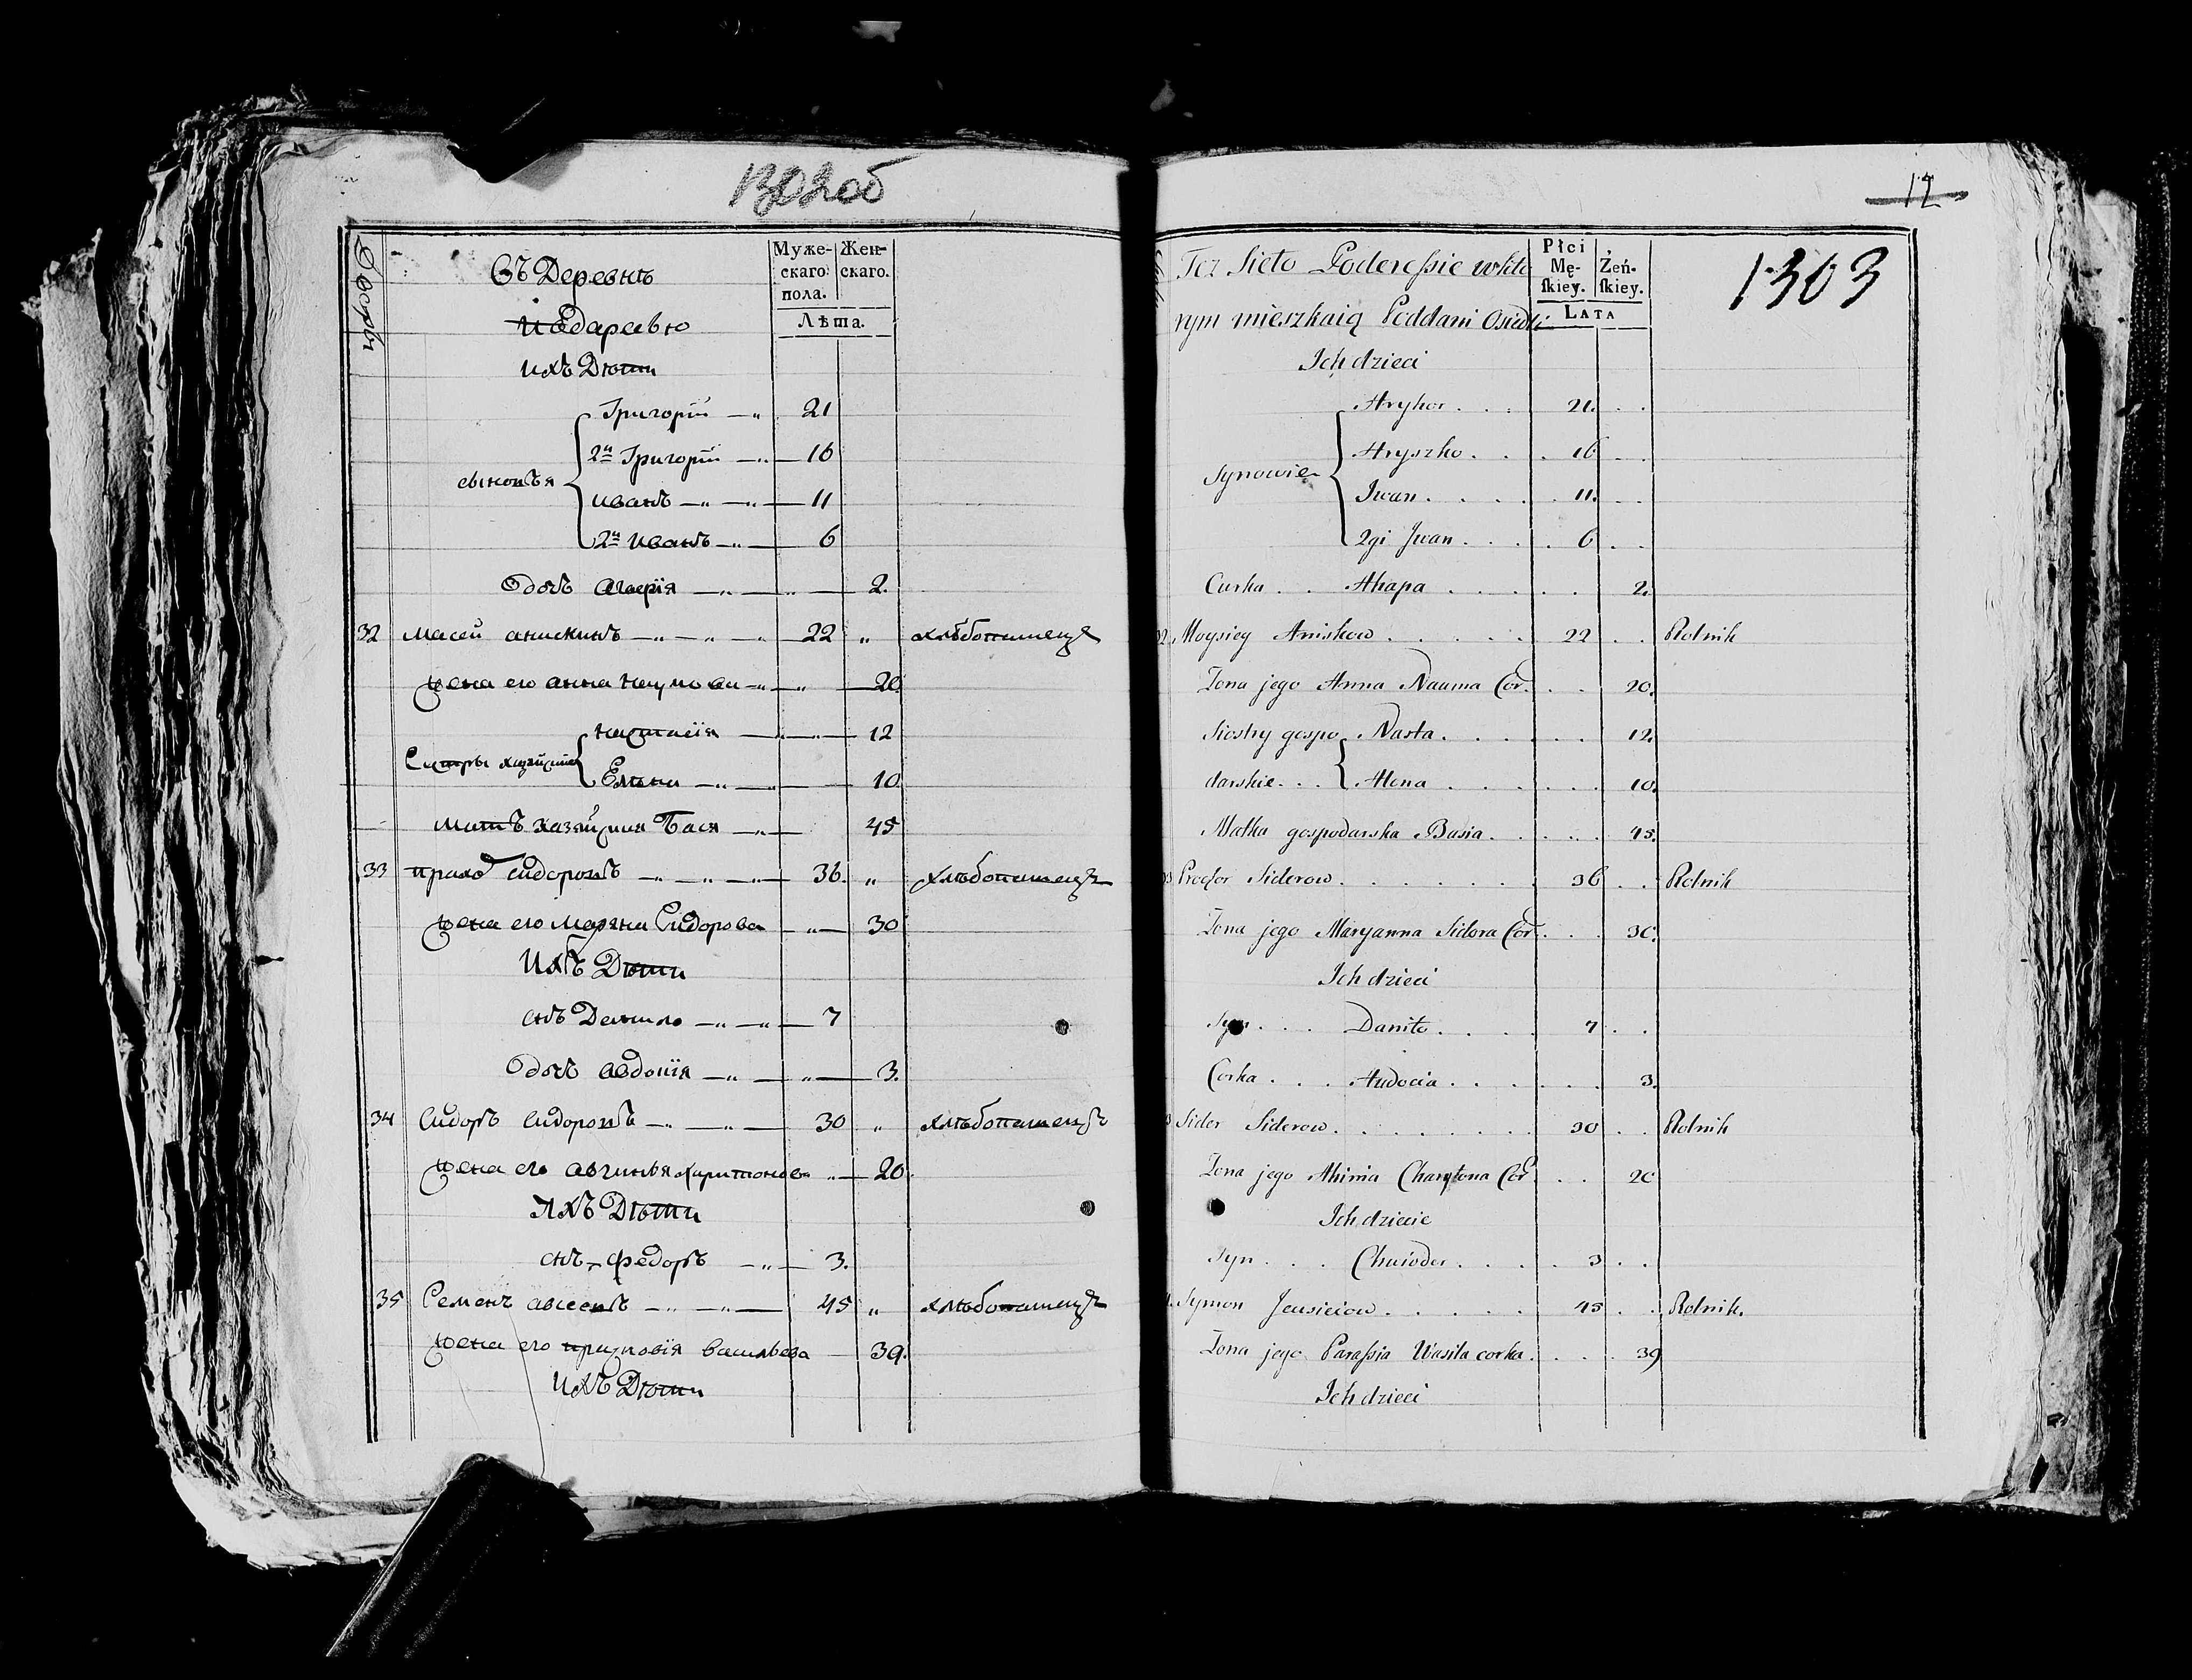 1302об
Дворы
Въ Деревнѣ
Мужескаго пола.
Женскаго.
Лѣта.
ихъ Дѣти
сыновья
Григорїй 21
2й Григорїй 16
иванъ 11
2й иванъ 6
дочь 2.
32 масей анискинъ 22 хлѣбопашецъ
жена его анна наумова 20.
Сестры
настасія 12
Елена 10
мать хазяйская Бася 45
33 сидоровъ 36. хлѣбопашецъ
жена его маряна Сидорова 30
ихъ Дѣти
снъ Данило 7
дочь авдотїя 3.
34 Сидоръ сидоровъ 30 хлѣбопашецъ
жена его авгинья харитонова 20
ихъ Дѣти
снъ федоръ 3.
35 Семенъ авсеевъ 45 хлѣбопашецъ
жена его васильева 39.
ихъ Дѣти
12
1303
Toż Sioło Poderessie w któ
rym mieszkaią Poddani Osiedli
Płci Męſkiey.
Żeńſkiey.
LATA
Ich dzieci
Synowie
Hryhor . . . 21. . .
Hryszko . . . 16 . .
Iwan . . . . 11. . .
2gi Iwan . . . 6 . .
Curka . . Ahapa . . . . . 2.
32. Moysiey Aniskow . . . . . 22 . . Rolnik
Zona jego Anna Nauma Cor. . . 20.
Siostry gospo
darskie. . .
Nasta. . . . . . . 12.
Alena . . . . . . 10.
Matka gospodarska Basia. . . . . 45.
33 Siderow. . . . . . . 36 . . Rolnik
Zona jego Maryanna Sidora Cor. . . . 30.
Ich dzieci
Syn . . . Daniło . . . . 7 . .
Corka . . . Audocia . . . . . . 3.
Sider Siderow. . . . . . . . 30 . . Rolnik
Zona jego Ahinia Charytona Cor . . 20
Ich dziecie
Syn . . . Chwiodor . . . . 3 . .
Symon Jeusieiow . . . . . . 45 . . Rolnik.
Zona jego Parassia Wasila corka. . . . 39
Ich dzieci